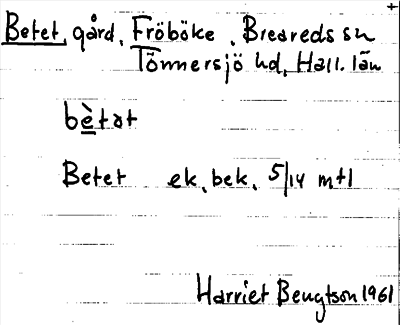 +
Betet, gård, Fröböke, Breareds sn
Tönnersjö hd, Hall. län
bètat
Betet ek. bek. 5/14 mtl
Harriet Bengtson 1961